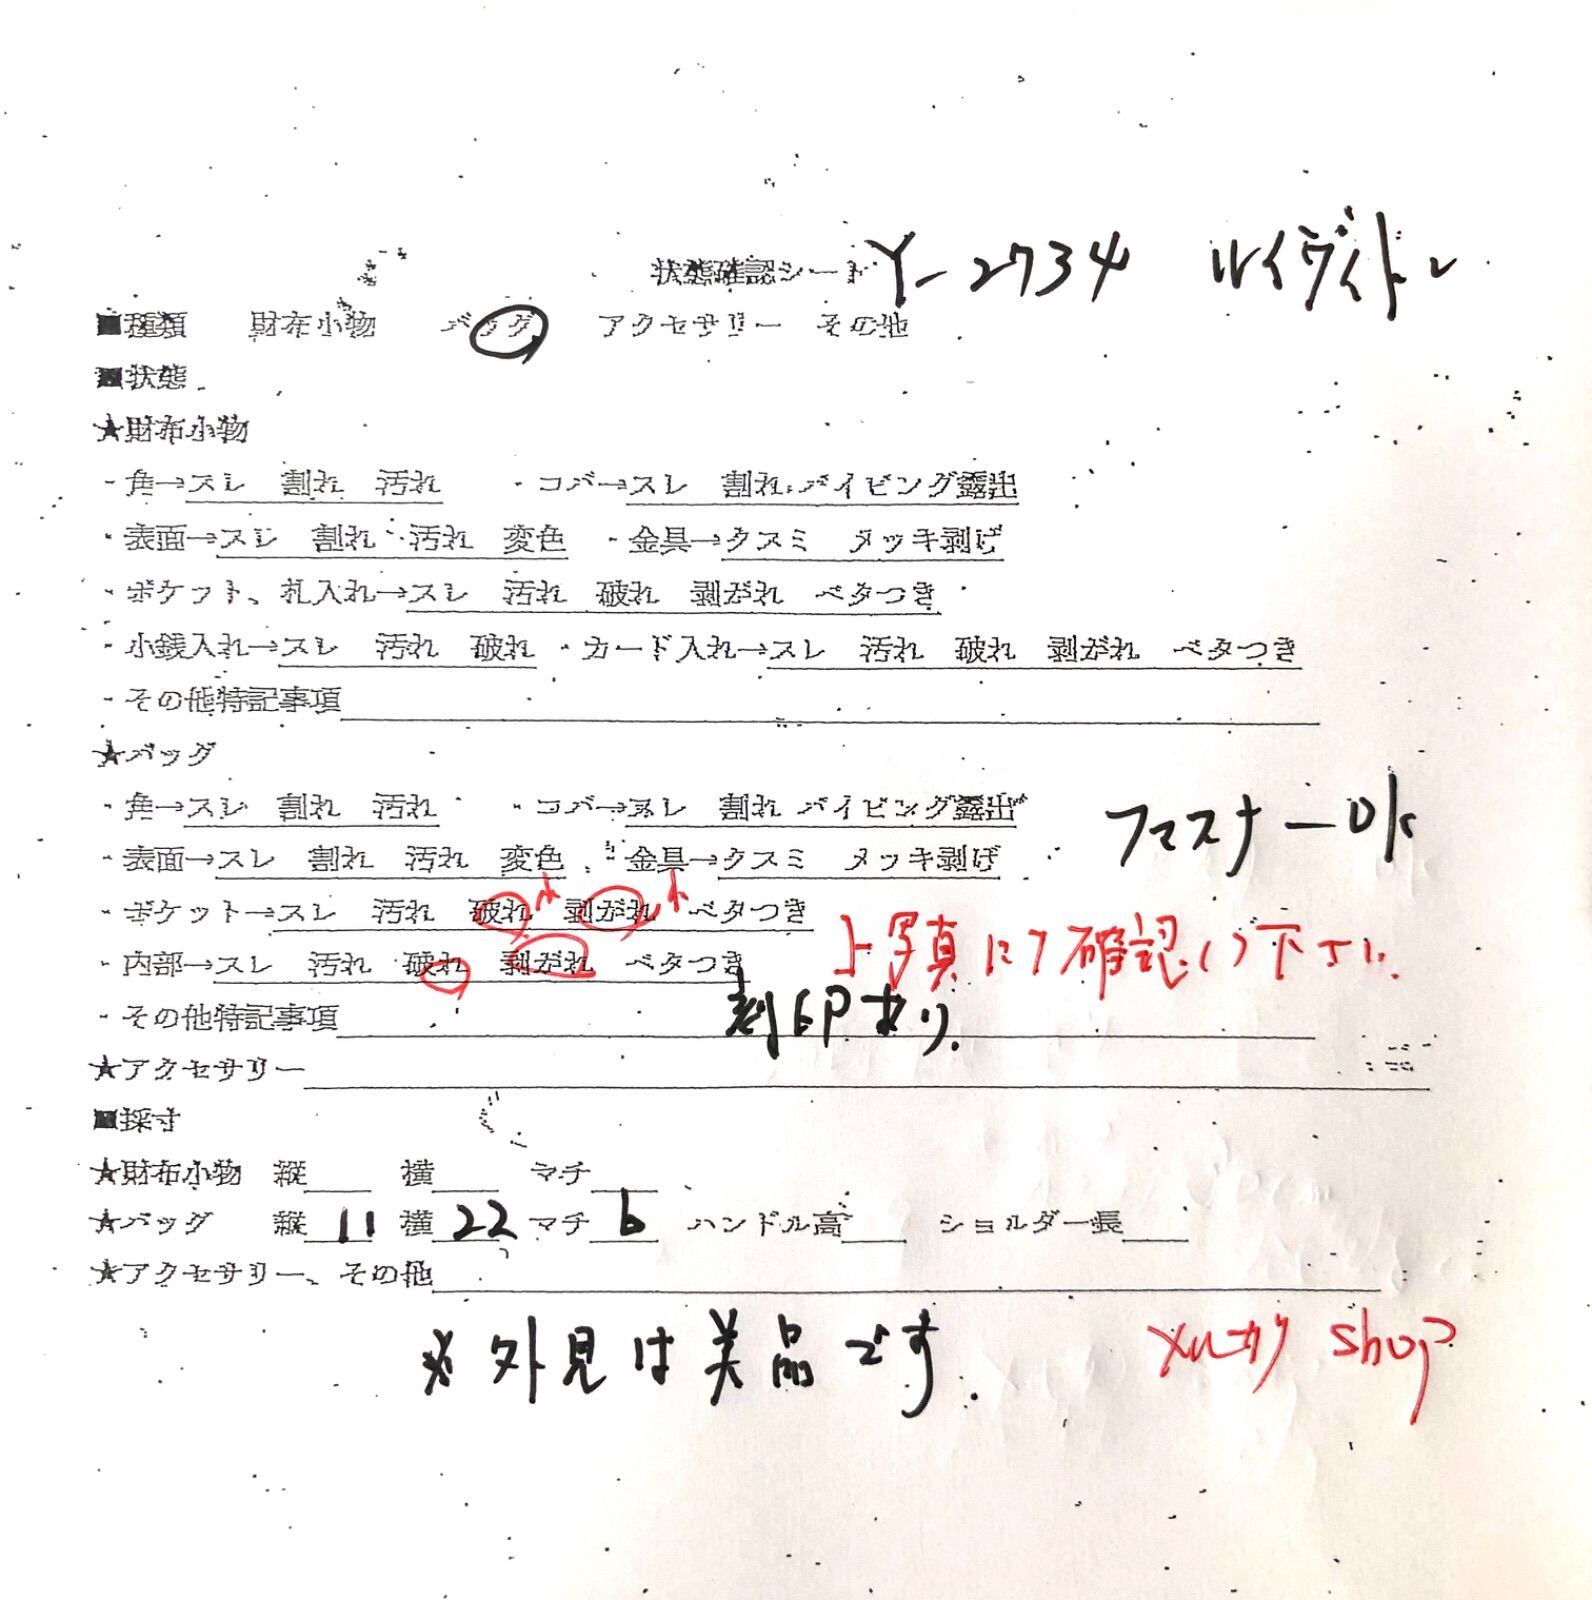 状態確認シート Y-2734 ルイヴィトン
■種類 財布小物 バッグ アクセサリー その他
■状態
★財布小物
・角→スレ 割れ 汚れ ・コバ→スレ 割れ パイピング露出
・表面→スレ 割れ 汚れ 変色 ・金具→クスミ メッキ剥げ
・ポケット、札入れ→スレ 汚れ 破れ 剥がれ ベタつき
・小銭入れ→スレ 汚れ 破れ ・カード入れ→スレ 汚れ 破れ 剥がれ ベタつき
・その他特記事項
★バッグ
・角→スレ 割れ 汚れ ・コバ→スレ 割れ パイピング露出
ファスナーOk
・表面→スレ 割れ 汚れ 変色 ・金具→クスミ メッキ剥げ
・ポケット→スレ 汚れ 破れ 小 剥がれ 小 ベタつき
・内部→スレ 汚れ 破れ 剥がれ ベタつき
写真にて確認して下さい。
・その他特記事項 刻印あり.
★アクセサリー
■採寸
★財布小物 縦 横 マチ
★バッグ 縦 11 横 22 マチ 6 ハンドル高 ショルダー長
★アクセサリー、その他
※外見は美品です.
メルカリ shop